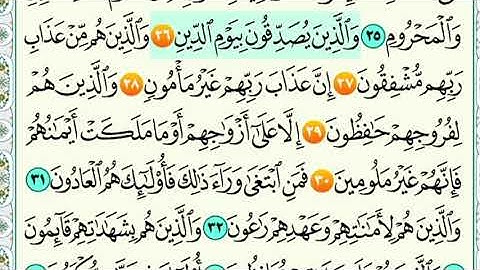 وَٱلْمَحْرُومِ ٢٥ وَٱلَّذِينَ يُصَدِّقُونَ بِيَوْمِ ٱلدِّينِ ٢٦ وَٱلَّذِينَ هُم مِّنْ عَذَابِ
رَبِّهِم مُّشْفِقُونَ ٢٧ إِنَّ عَذَابَ رَبِّهِمْ غَيْرُ مَأْمُونٍ ٢٨ وَٱلَّذِينَ هُمْ
لِفُرُوجِهِمْ حَٰفِظُونَ ٢٩ إِلَّا عَلَىٰٓ أَزْوَٰجِهِمْ أَوْ مَا مَلَكَتْ أَيْمَٰنُهُمْ
فَإِنَّهُمْ غَيْرُ مَلُومِينَ ٣٠ فَمَنِ ٱبْتَغَىٰ وَرَآءَ ذَٰلِكَ فَأُو۟لَٰٓئِكَ هُمُ ٱلْعَادُونَ ٣١
وَٱلَّذِينَ هُمْ لِأَمَٰنَٰتِهِمْ وَعَهْدِهِمْ رَٰعُونَ ٣٢ وَٱلَّذِينَ هُم بِشَهَٰدَٰتِهِمْ قَآئِمُونَ